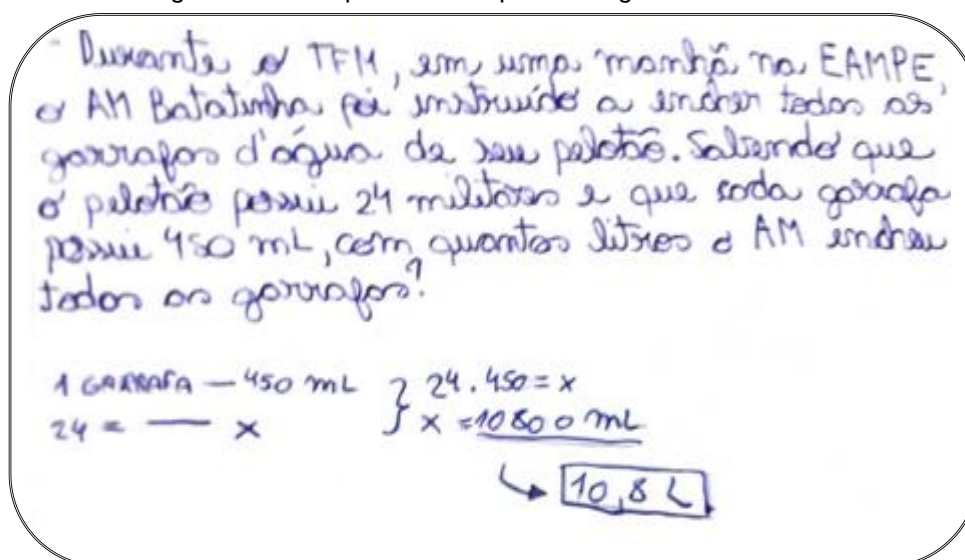 Durante o TFM, em uma manhã na EAMPE,
o AM Batatinha foi instruído a encher todas as
garrafas d'água de seu pelotão. Sabendo que
o pelotão possui 24 militares e que cada garrafa
possui 450 mL, com quantos litros o AM encheu
todas as garrafas?
1 GARRAFA — 450 mL } 24 . 450 = x
24 = — x } x = 10800 mL
↳ 10,8 L